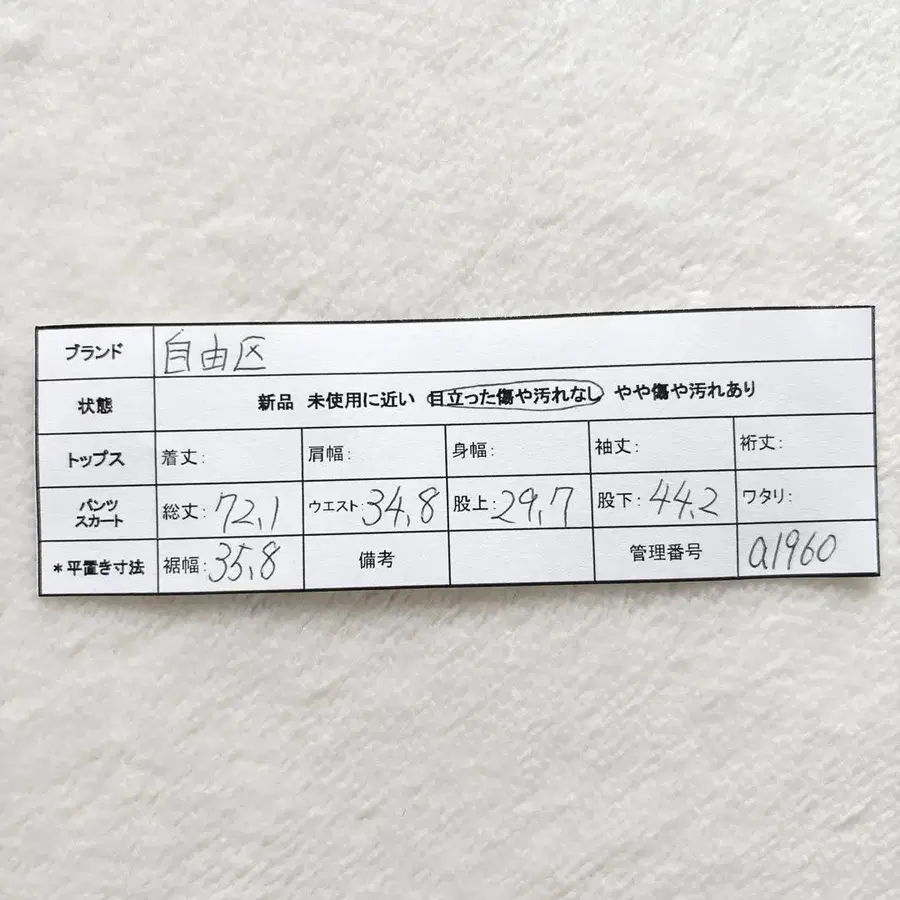 ブランド 自由区
状態 新品 未使用に近い 目立った傷や汚れなし やや傷や汚れあり
トップス 着丈: 肩幅: 身幅: 袖丈: 裄丈:
パンツ スカート 総丈: 72,1 ウエスト: 34,8 股上: 29,7 股下: 44,2 ワタリ:
*平置き寸法 裾幅: 35,8 備考 管理番号 a1960